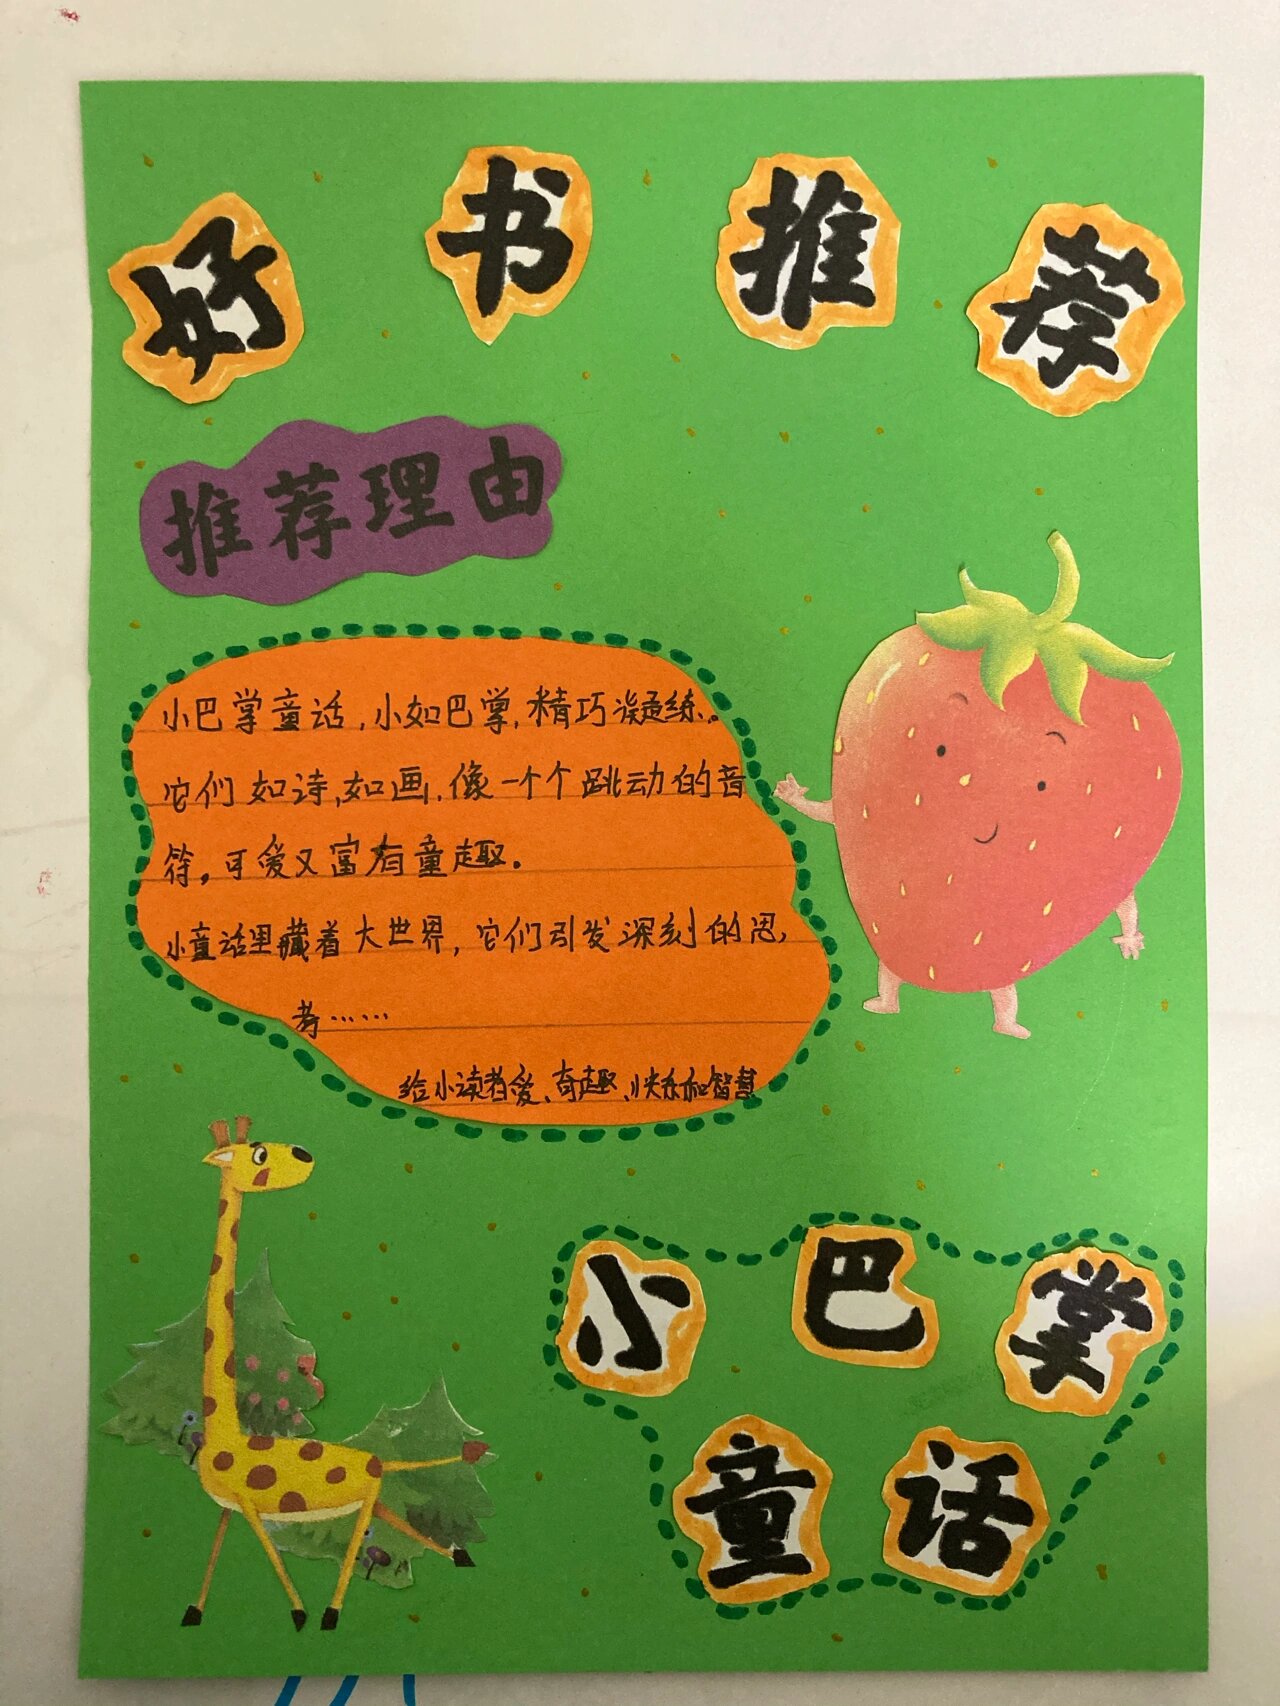 好书推荐
推荐理由
小巴掌童话，小如巴掌，精巧凝练。
它们如诗，如画，像一个个跳动的音
符，可爱又富有童趣。
小童话里藏着大世界，它们引发深刻的思
考……
给小读者爱、奇趣、快乐和智慧
小巴掌
童话